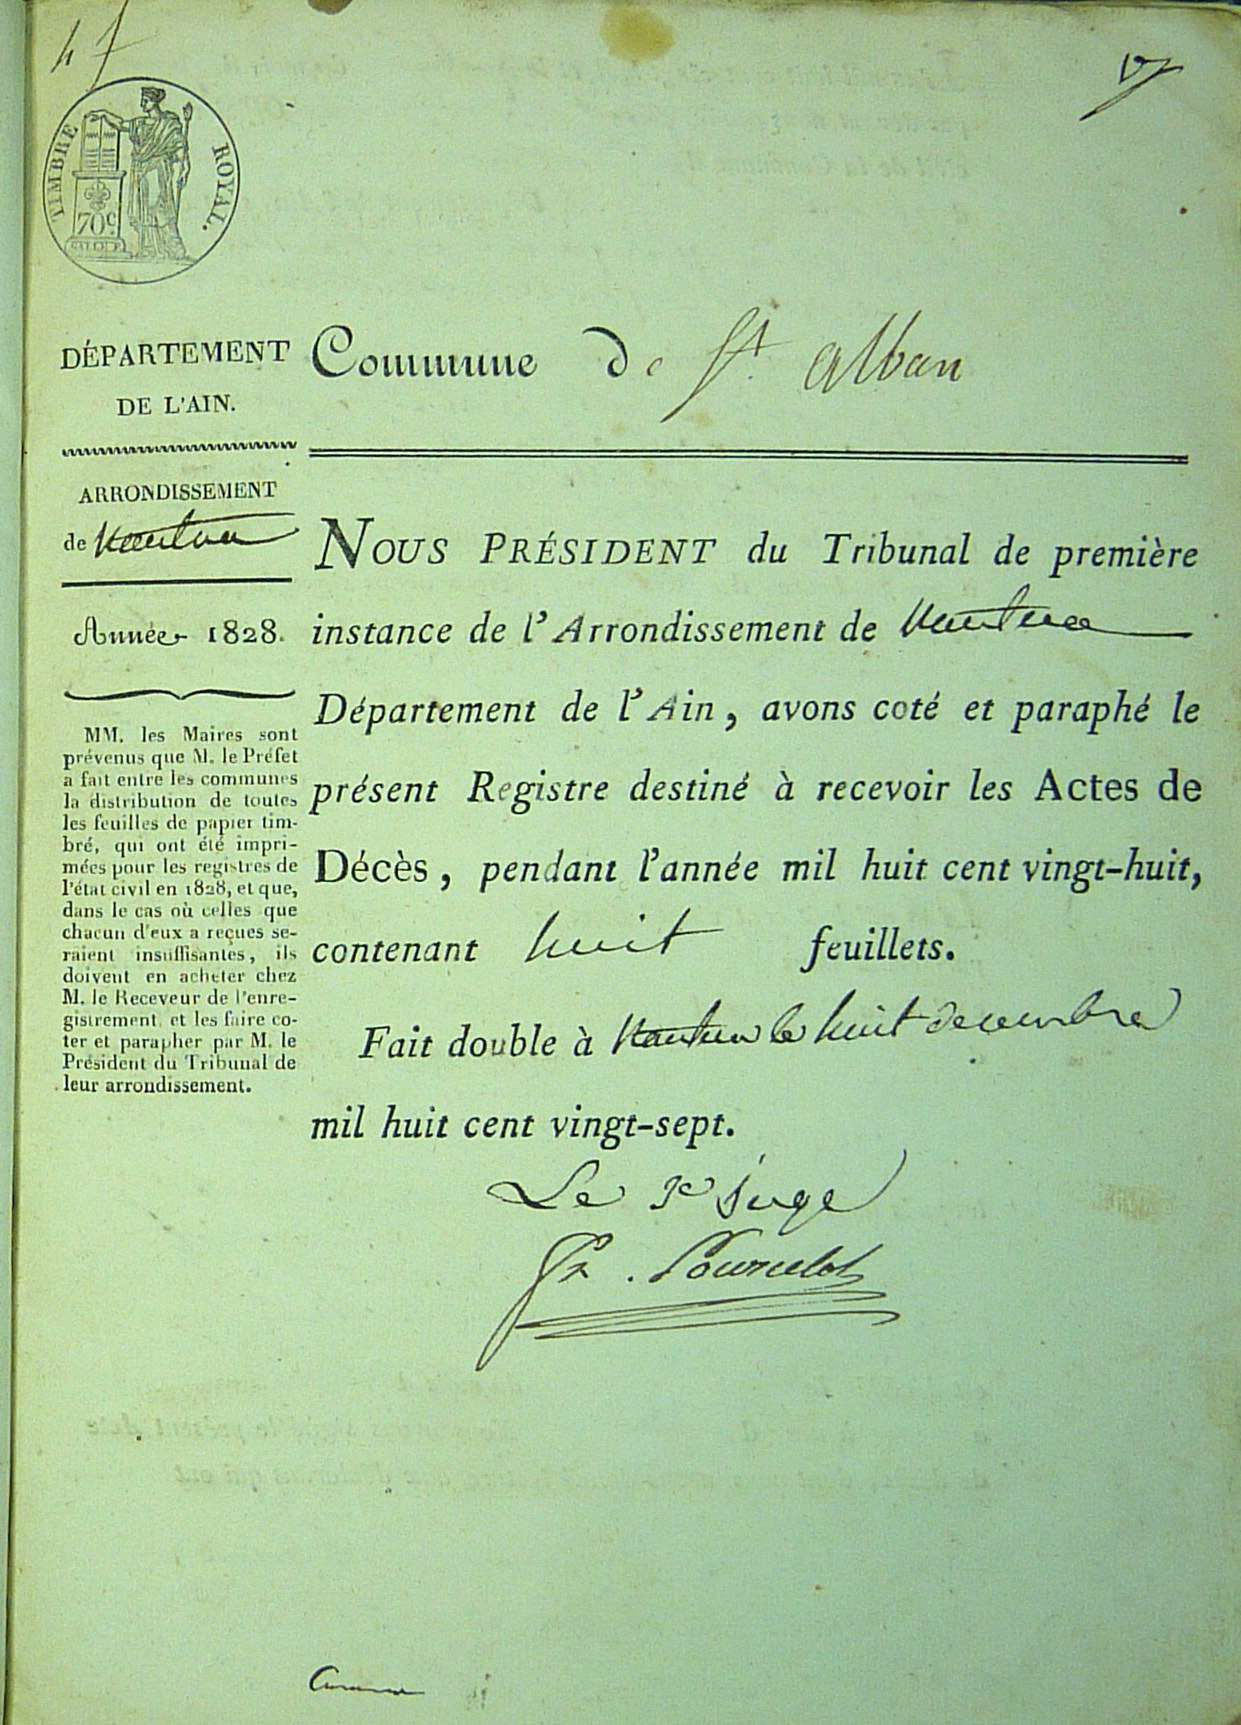 47
TIMBRE ROYAL.
70c
DÉPARTEMENT
DE L'AIN.
Commune de St. Alban
ARRONDISSEMENT
de Nantua
Année 1828.
MM. les Maires sont
prévenus que M. le Préfet
a fait entre les communes
la distribution de toutes
les feuilles de papier tim-
bré, qui ont été impri-
mées pour les registres de
l'état civil en 1828, et que,
dans le cas où celles que
chacun d'eux a reçues se-
raient insuffisantes, ils
doivent en acheter chez
M. le Receveur de l'enre-
gistrement et les faire co-
ter et parapher par M. le
Président du Tribunal de
leur arrondissement.
NOUS PRÉSIDENT du Tribunal de première
instance de l'Arrondissement de Nantua
Département de l'Ain, avons coté et paraphé le
présent Registre destiné à recevoir les Actes de
Décès, pendant l'année mil huit cent vingt-huit,
contenant huit feuillets.
Fait double à Nantua le huit decembre
mil huit cent vingt-sept.
Le Juge